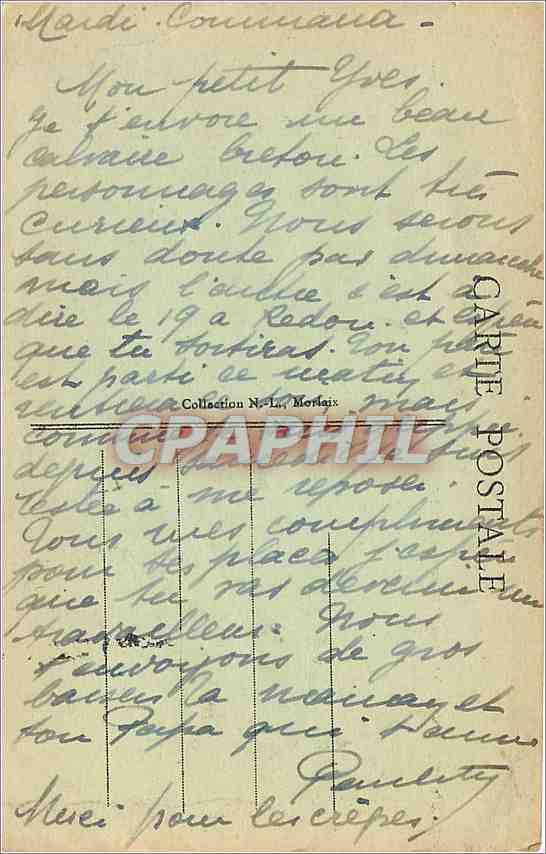 Mardi. Commana -
Mon petit Yves.
Je t'envoie un beau
calvaire breton. Les
personnages sont très
curieux. Nous serons
sans doute pas dimanche
mais l'autre c'est à
dire le 19 à Redon. et
que tu sortiras. Ton
est parti ce matin
CARTE POSTALE
Collection N.-L., Morlaix
CPAPHIL
comme
depuis je suis
restée à me reposer.
Tous mes compliments
pour tes places j'espère
que tu vas devenir un
travailleur. Nous
t'envoyons de gros
baisers ta maman et
ton Papa qui t'aime
Merci pour les crêpes.